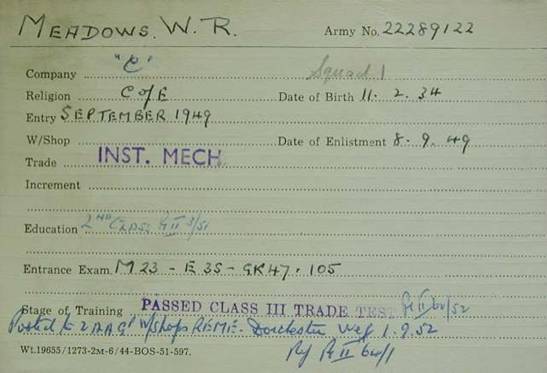 MEADOWS. W. R. Army No. 22289122
Company "C" Squad 1
Religion C of E Date of Birth 11. 2. 34
Entry SEPTEMBER 1949
W/Shop Date of Enlistment 8. 9. 49
Trade INST. MECH.
Increment
Education 2ND CLASS Pt II 3/51
Entrance Exam. M 23 - E 35 - GK47. 105
Stage of Training PASSED CLASS III TRADE TEST Pt II 60/52
Posted to 2 A.A.G' W/Shops REME. Dorchester wef 1.9.52
Wt.19655/1273-2M-6/44-BOS-51-597. Pt II 60/1